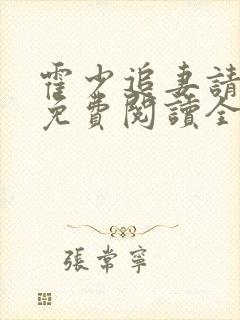 霍少追妻請
免費閱讀全
張常寧